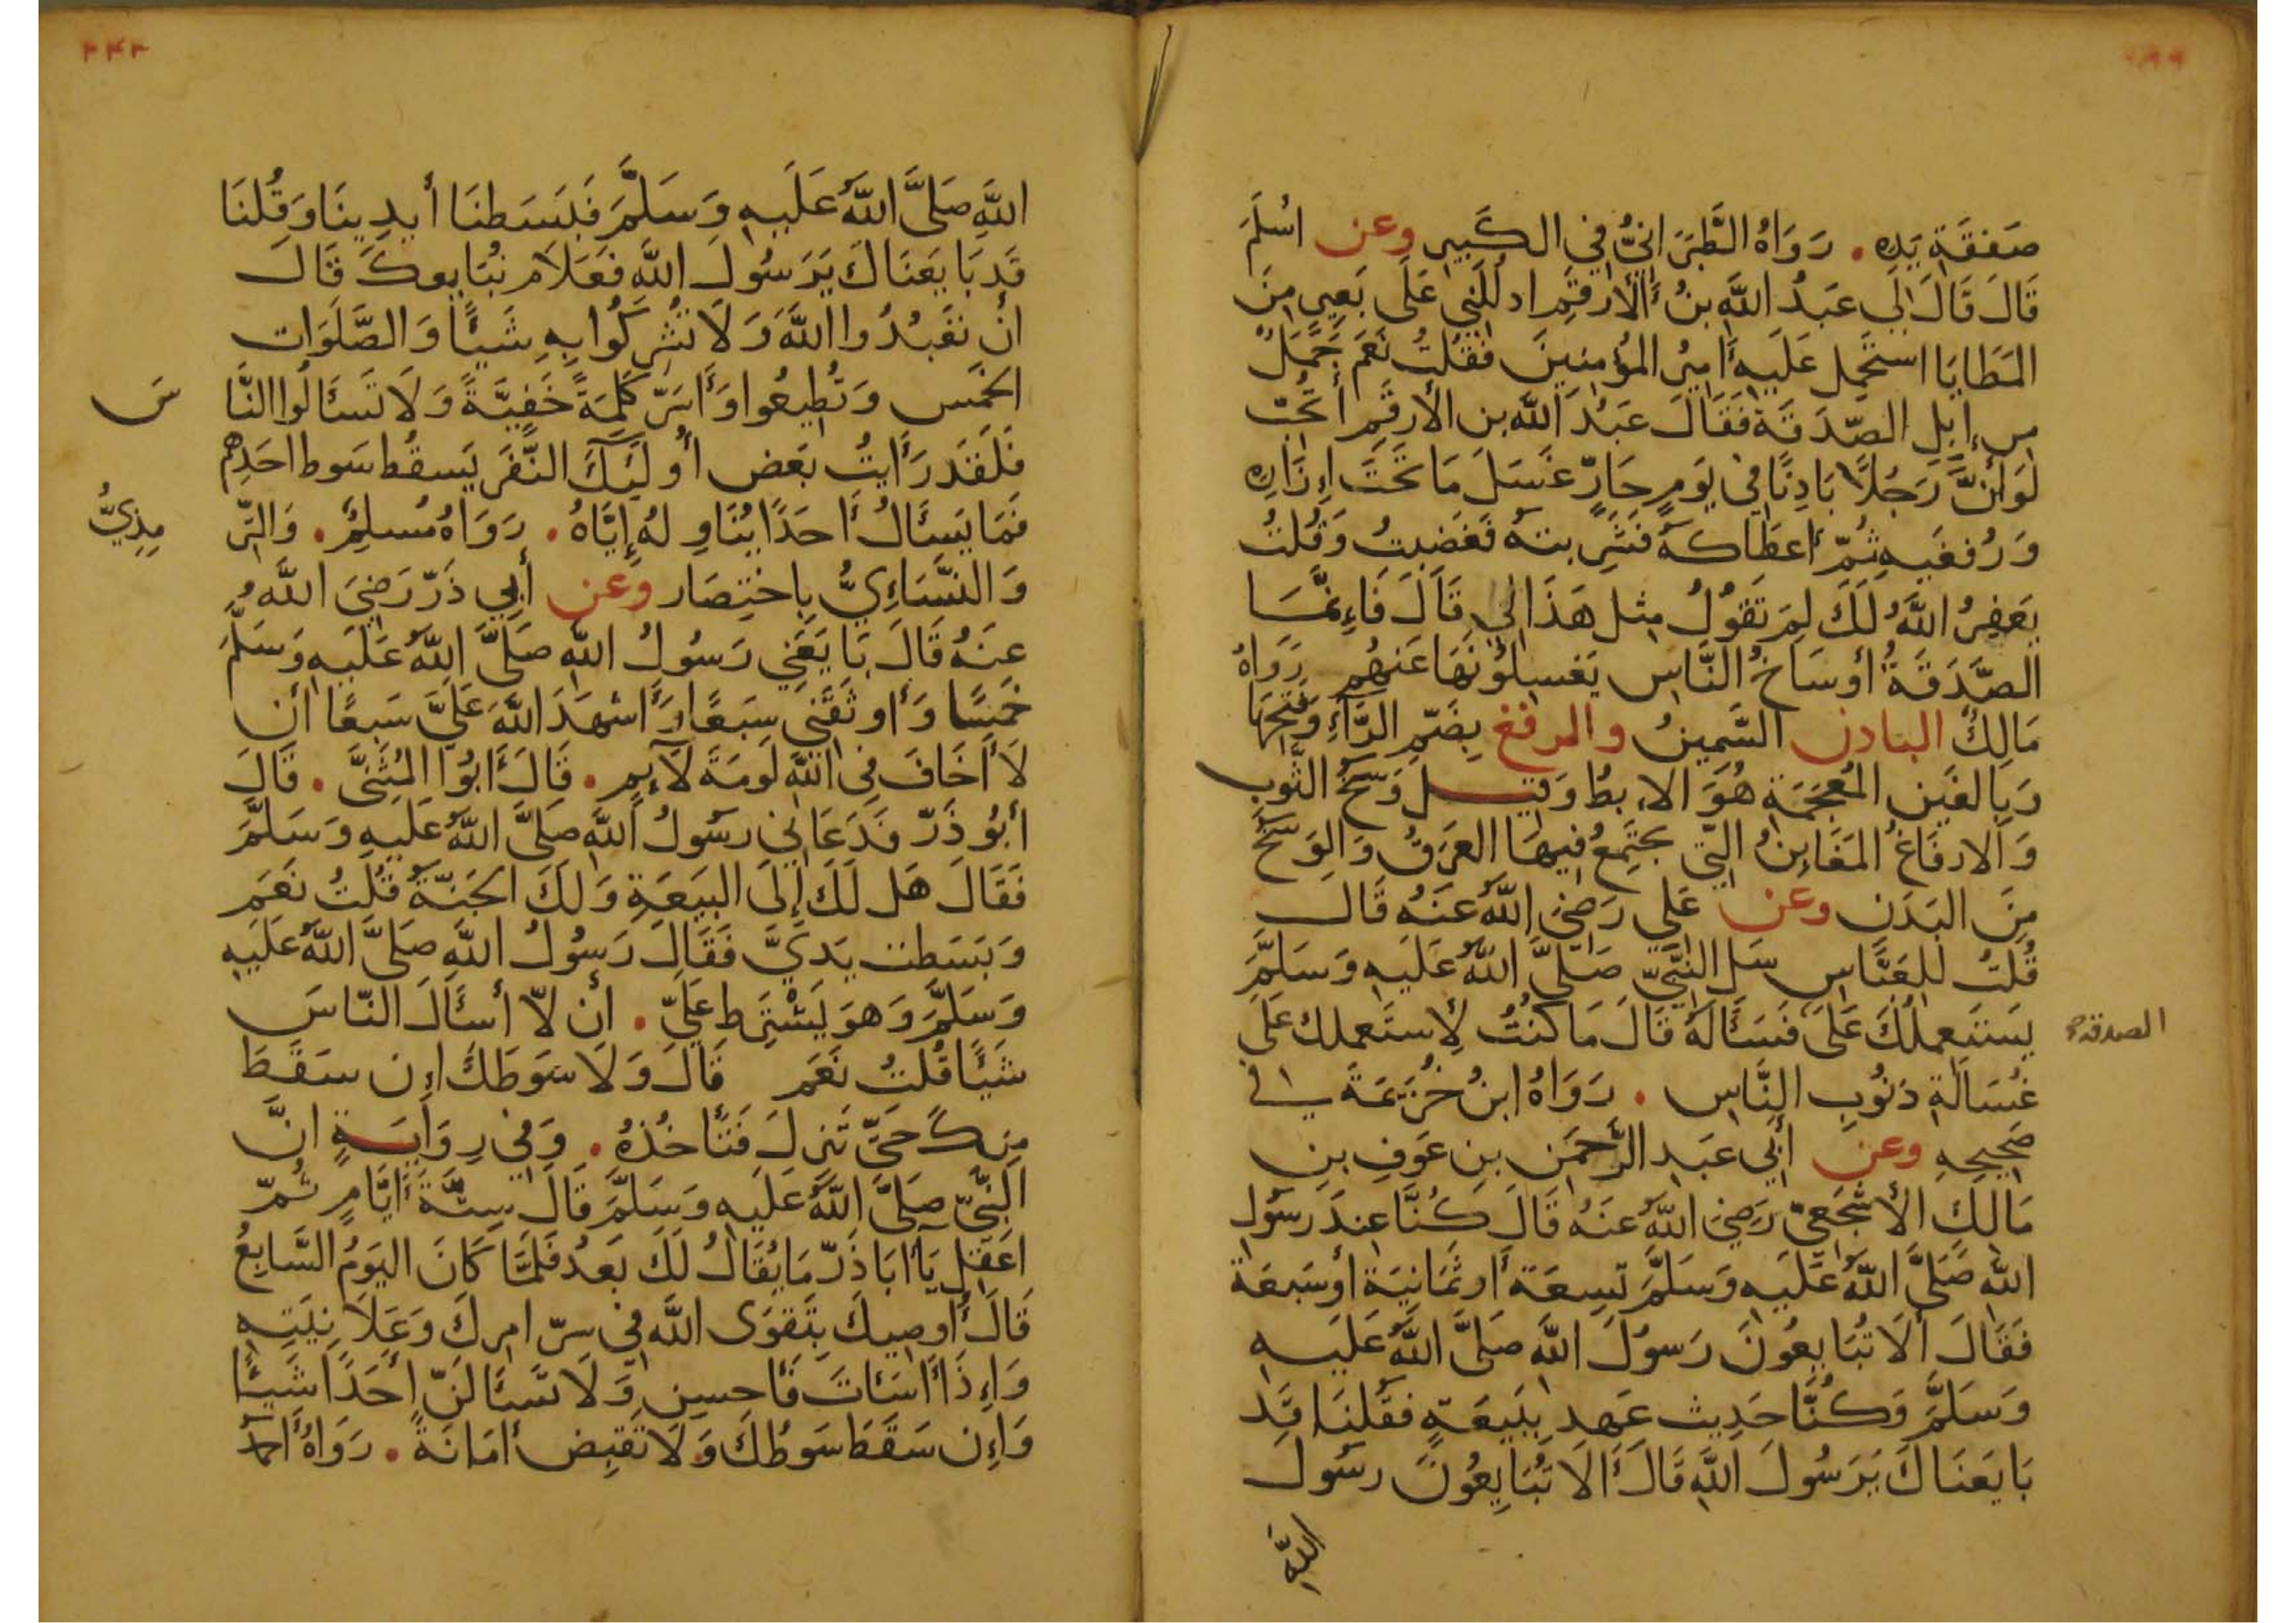 صَفقَةِ يَدِهِ. رَوَاهُ الطَّبَرَانِيُّ فِي الكَبِيرِ وعن اسْلَمَ
قَالَ قَالَ لِي عَبدُ اللَّهِ بنُ الأَرقَمِ ادلُلنِي عَلَى بَعِيرٍ مِنَ
المَطَايَا استَحمِل عَلَيهِ أَمِيرُ المُؤمِنِينَ فَقُلتُ نَعَم جَمَلٌ
مِن إِبِلِ الصَّدَقَةِ فَقَالَ عَبدُ اللَّه بن الأَرقَمِ أَتُحِبُّ
لَو أَنَّ رَجُلاً بَادِنًا فِي يَومٍ حَارٍّ غَسَلَ مَا تَحتَ إِزَارِهِ
وَرُفغَيهِ ثُمَّ أَعطَاكَهُ فَشَرِبتَهُ فَغَضِبتُ وَقُلتُ
يَغفِرُ اللَّهُ لَكَ لِمَ تَقُولُ مِثلَ هَذَا لِي قَالَ فَإِنَّمَا
الصَّدَقَةُ أَوسَاخُ النَّاسِ يَغسِلُونَهَا عَنهُم رَوَاهُ
مَالِكٌ البادن السَّمِينُ والرفغ بِضَمِّ الرَّاءِ وَفَتحِهَا
وَبِالغَينِ المُعجَمَةِ هُوَ الإِبطُ وَقِيلَ وَسَخُ الثَّوبِ
وَالارفَاغُ المَغَابِنُ الَّتِي يَجتَمِعُ فِيهَا العَرَقُ وَالوَسَخُ
مِنَ البَدَنِ وعن عَلِي رَضِيَ اللَّهُ عَنهُ قَالَ
قُلتُ لِلعَبَّاسِ سَلِ النَّبِيَّ صَلَّى اللَّهُ عَلَيهِ وَسَلَّمَ
يَستَعمِلُكَ عَلَى فَسَأَلَهُ قَالَ مَا كُنتُ لِأَستَعمِلكَ عَلَى
الصدقة
غُسَالَةِ ذنُوبِ النَّاسِ. رَوَاهُ ابنُ خُزَيمَةَ فِي
صَحِيحِهِ وعن أَبِي عَبدِ الرَّحمَنِ بنِ عَوفِ بنِ
مَالِكٍ الأَشجَعِيِّ رَضِيَ اللَّهُ عَنهُ قَالَ كُنَّا عِندَ رَسُولِ
اللَّه صَلَّى اللَّهُ عَلَيهِ وَسَلَّمَ تِسعَةً أَو ثَمَانِيَةً أَو سَبعَةً
فَقَالَ أَلَا تُبَايِعُونَ رَسُولَ اللَّهِ صَلَّى اللَّهُ عَلَيهِ
وَسَلَّمَ وَكُنَّا حَدِيث عَهدٍ بِبَيعَةٍ فَقُلنَا قَد
بَايَعنَاكَ يَرَسُولَ اللَّهِ قَالَ أَلَا تُبَايِعُونَ رسُولَ
اللَّهِ
٢٤٣
اللَّهِ صَلَّى اللَّهُ عَلَيهِ وَسَلَّمَ فَبَسَطنَا أَيدِينَا وَقُلنَا
قَد بَايَعنَاكَ يَرَسُولَ اللَّهِ فَعَلَامَ نُبَايِعكَ قَالَ
أَن تَعبُدُوا اللَّهَ وَلَا تُشرِكُوا بِهِ شَيئًا وَالصَّلَوَاتِ
الخَمس وَتُطِيعُوا وَأَسَرَّ كَلِمَةً خَفِيَّةً وَلَا تَسئَالُوا النَّا
سَ
فَلَقَد رَأَيتُ بَعضَ أُولَئِكَ النَّفَرِ يَسقُط سَوط احَدِهِم
فَمَا يَسئَالُ أَحَدًا يُنَاوِلهُ إِيَّاهُ. رَوَاهُ مُسلِمٌ. وَالتِّر
مِذِيُّ
وَالنَّسَاءِيُّ بِاختِصَار وعن أَبِي ذَرّ رَضِيَ اللَّهُ
عَنهُ قَالَ بَايَعَنِي رَسُولُ اللَّهِ صَلَّى اللَّهُ عَلَيهِ وَسَلَّمَ
خَمسًا وَأَوثَقَنِي سَبعًا وَأَشهَدَ اللَّهَ عَلَيَّ سَبعًا أَن
لَا أَخَافَ فِي اللَّهِ لَومَةَ لَآءِمٍ. قَالَ أَبُوا المُثَنَّى. قَالَ
أَبُو ذَرّ فَدَعَانِي رسُولُ اللَّهِ صَلَّى اللَّهُ عَلَيهِ وَسَلَّمَ
فَقَالَ هَل لَكَ إِلَى البَيعَةِ وَلَكَ الجَنَّةُ قُلتُ نَعَم
وَبَسَطت يَدَيَّ فَقَالَ رَسُولُ اللَّهِ صَلَّى اللَّهُ عَلَيهِ
وَسَلَّمَ وَهوَ يَشْتَرِط عَلَيَّ. أَن لَّا أَسئَالَ النَّاسَ
شَيئًا قُلتُ نَعَم قَالَ وَلَا سَوطَكَ إِن سَقَطَ
مِنكَ حَتَّى تَنزِلَ فَتَأخُذهُ. وَفِي رِوَايَةٍ انَّ
النَّبِيَّ صَلَّى اللَّهُ عَلَيهِ وَسَلَّمَ قَالَ سِتَّةَ أَيَّامٍ ثُمَّ
اعقِل يَآ أَبَا ذَرّ مَا يُقَالُ لَكَ بَعدُ فَلَمَّا كَانَ اليَومُ السَّابِعُ
قَالَ أُوصِيكَ بِتَقوَى اللَّهِ فِي سِرّ امرِكَ وَعَلَانِيَتِهِ
وَإِذَا أَسَئاتَ فَأَحسِن وَلَا تَسئَالَنَّ أَحَدًا شَيئًا
وَإِن سَقَطَ سَوطُكَ وَلَا تَقبِض أَمَانَةً. رَوَاهُ أَحمَد